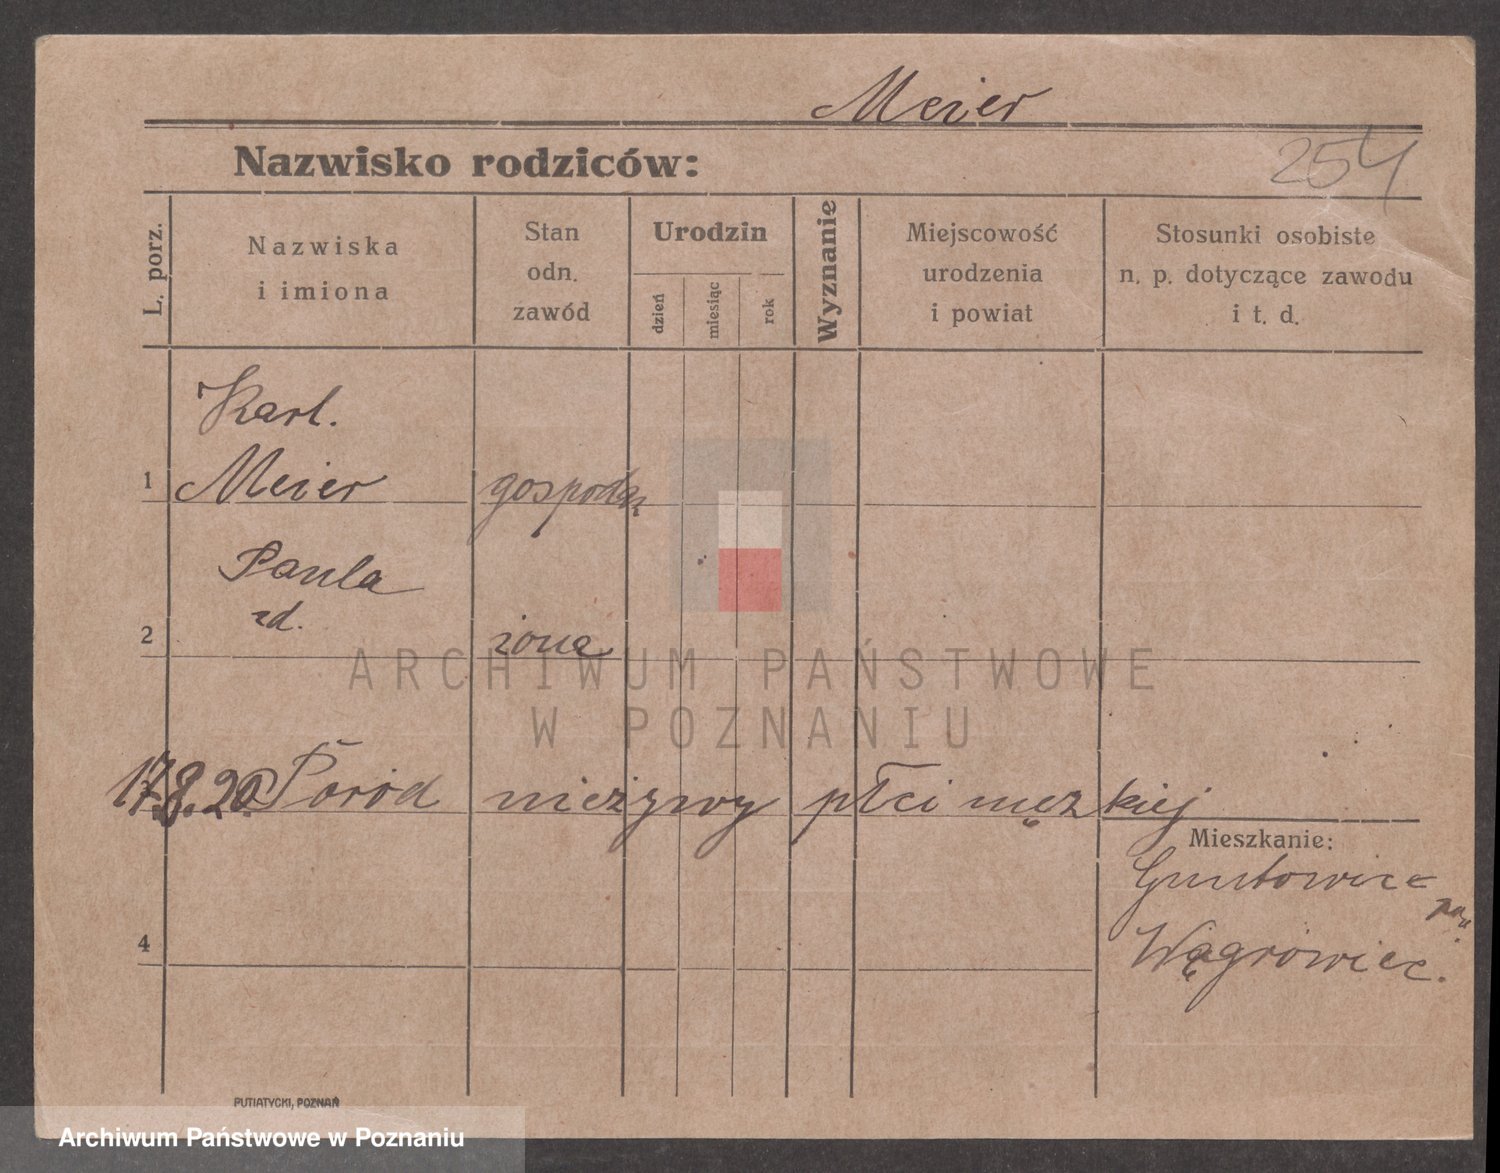 Meier
Nazwisko rodziców:
254
L. porz.
Nazwiska
i imiona
Stan
odn.
zawód
Urodzin
dzień
miesiąc
rok
Wyznanie
Miejscowość
urodzenia
i powiat
Stosunki osobiste
n. p. dotyczące zawodu
i t. d.
Karl.
1 Meier gospodarz
Paula
zd.
2 żona
ARCHIWUM PAŃSTWOWE
W POZNANIU
17.8.20. Poród nieżywy płci męzkiej
Mieszkanie:
pow.
4
Wągrówiec.
PUTIATYCKI, POZNAŃ
Archiwum Państwowe w Poznaniu